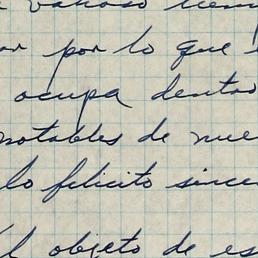 valioso
por lo que
ocupa dentro
notables de nue
lo felicito since
el objeto de es